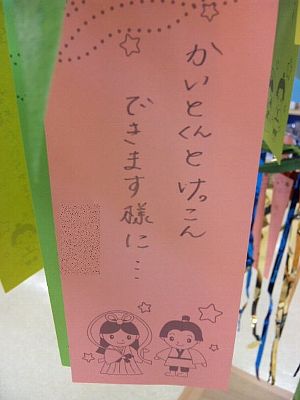 かいとくんとけっこん
できます様に…